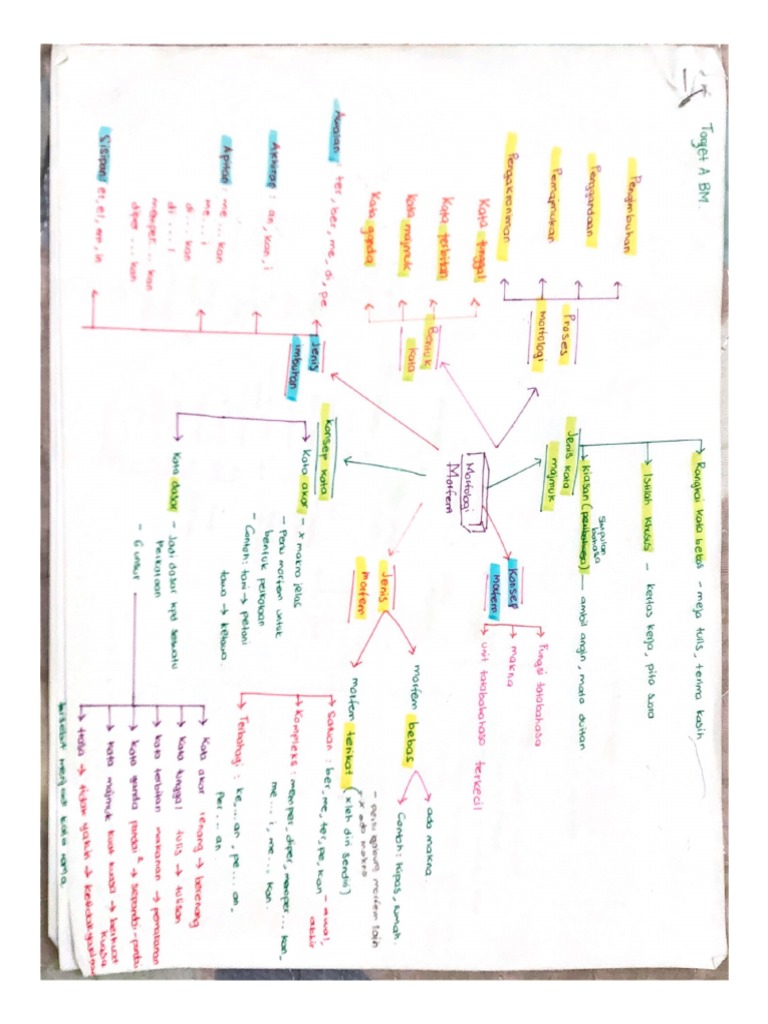 Target A BM.
Morfologi
Morfem
Proses
morfologi
Pengimbuhan
Penggandaan
Pemajmukan
Pengakroniman
Bentuk
kata
Kata tunggal
Kata terbitan
Kata majmuk
Kata ganda
Jenis
imbuhan
Awalan : ter, ber, me, di, pe
Akhiran : an, kan, i
Apitan : me ... kan
me ... i
di ... kan
di ... i
memper ... kan
diper ... kan
Sisipan : er, el, em, in
Jenis kata
majmuk
Rangkai kata bebas - meja tulis, terima kasih
Istilah khusus - kertas kerja, pita suara
Kiasan (peribahasa) - ambil angin, mata duitan
Simpulan
bahasa
Konsep
morfem
Fungsi tatabahasa
makna
unit tatabahasa terkecil
Jenis
morfem
morfem bebas
ada makna.
Contoh : kipas, rumah.
morfem terikat (xleh diri sendiri)
- perlu gabung morfem lain
x ada makna
Satuan : ber, me, ter, pe, kan - awal,
akhir
Kompleks : memper, diper, memper... kan,
me ... i, me... kan.
Terbahagi : ke, ... an, pe ... an,
per ... an.
Konsep kata
Kata akar - x makna jelas
- Perlu morfem untuk
bentuk perkataan
- Contoh : tani → petani
tawa → ketawa.
Kata dasar - Jadi dasar kpd sesuatu
Perkataan
- 6 unsur
Kata akar renang → berenang
Kata tunggal tulis → tulisan
Kata terbitan makanan → pemakanan
Kata ganda pandai² → sepandai-pandai
Kata majmuk kuat kuasa → berkuat
kuasa
frasa → tidak yakin → ketidakyakinan